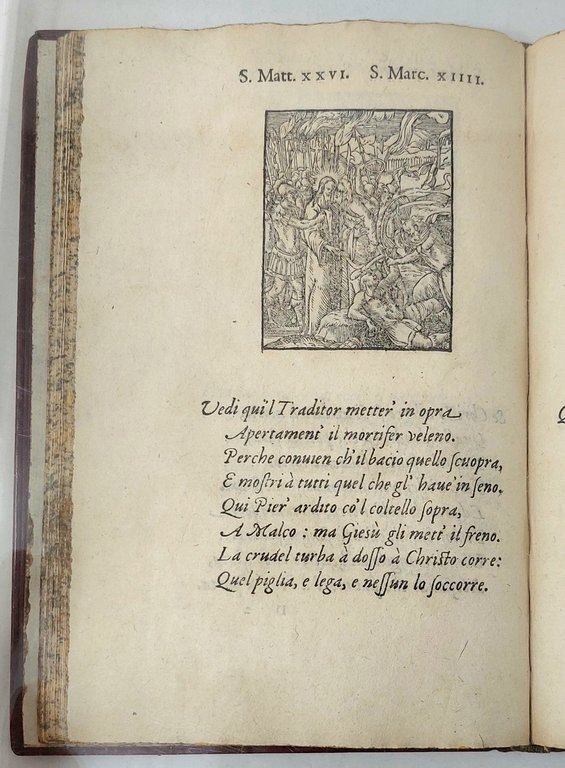 S. Matt. XXVI. S. Marc. XIIII.
Vedi qui'l Traditor metter' in opra
Apertament' il mortifer veleno.
Perche conuien ch'il bacio quello scuopra,
E mostri à tutti quel che gl' haue' in seno.
Qui Pier' ardito co'l coltello sopra,
A Malco : ma Giesù gli mett' il freno.
La crudel turba à dosso à Christo corre:
Quel piglia, e lega, e nessun lo soccorre.